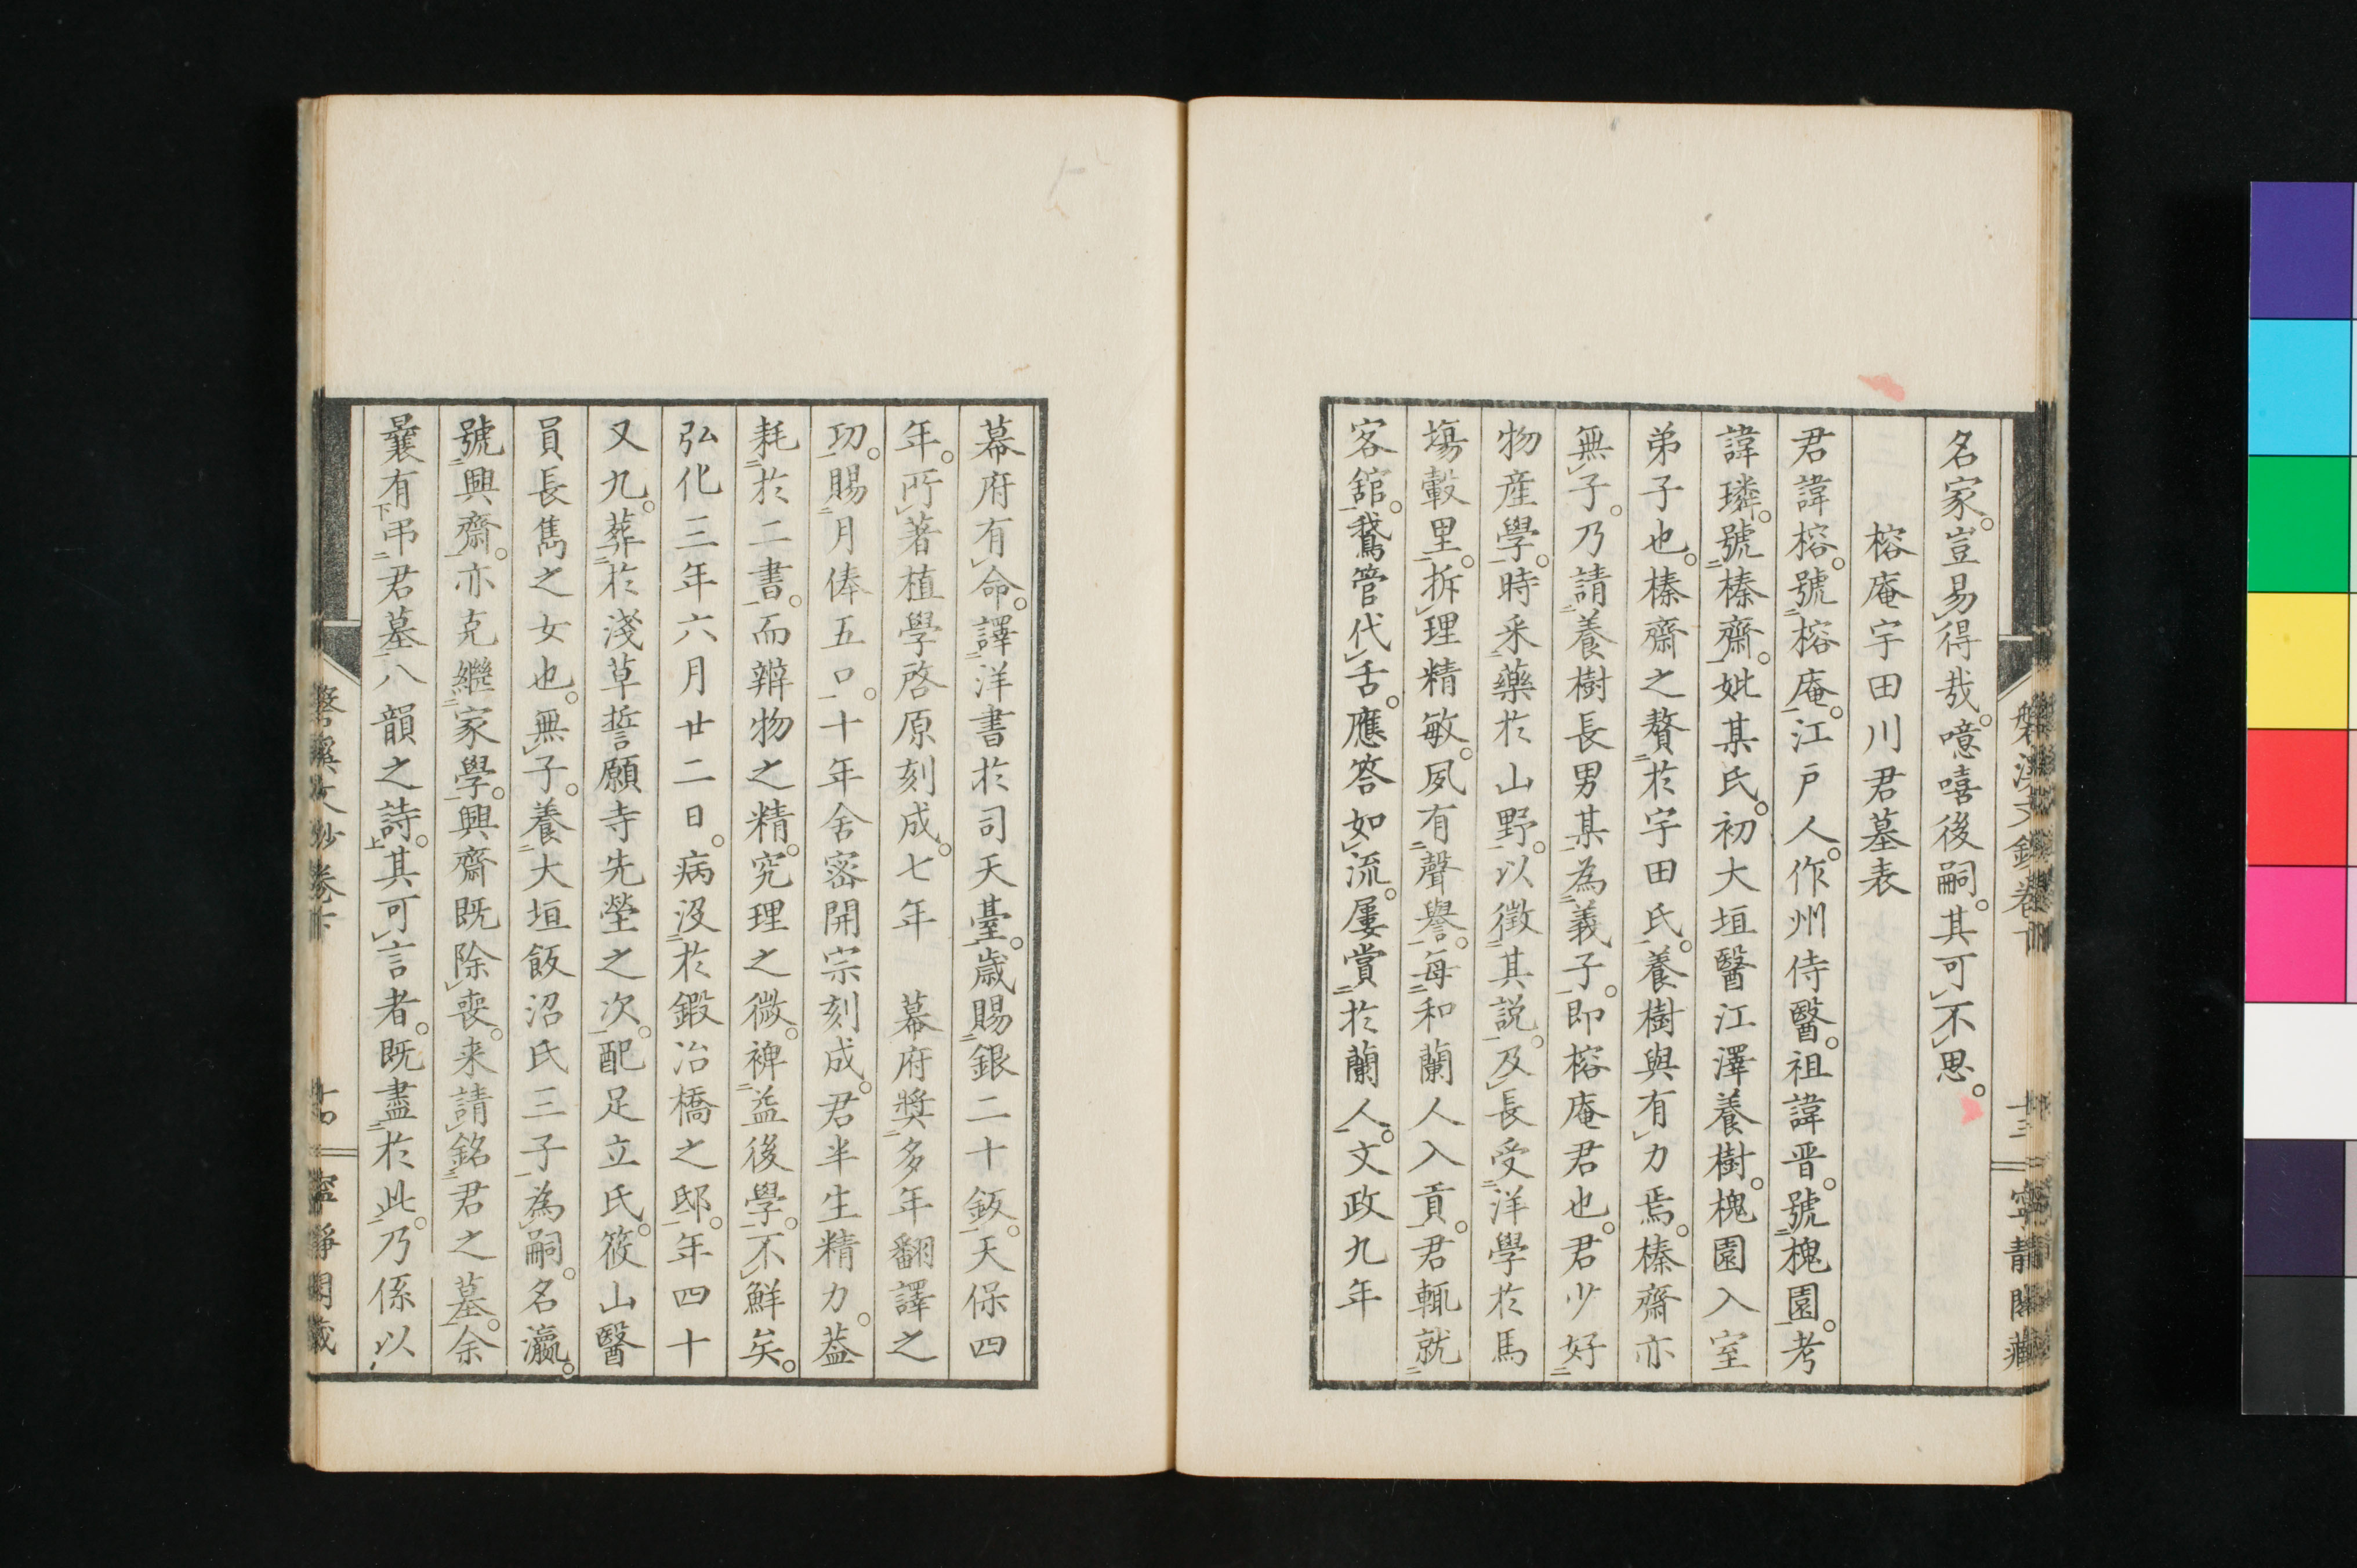 名家。豈易得哉。噫嘻後嗣。其可不思。
榕庵宇田川君墓表
君諱榕。號榕庵。江戸人。作州侍醫。祖諱晋。號槐園。考
諱璘。號榛齋。妣某氏。初大垣醫江澤養樹。槐園入室
弟子也。榛齋之贅於宇田氏。養樹與有力焉。榛齋亦
無子。乃請養樹長男某為義子。即榕庵君也。君少好
物産學。時采藥於山野。以徴其説。及長受洋學於馬
塲轂里。拆理精敏。夙有聲譽。毎和蘭人入貢。君輒就
客舘。鵞管代舌。應答如流。屢賞於蘭人。文政九年
幕府有命。譯洋書於司天臺。歳賜銀二十鈑。天保四
年。所著植學啓原刻成。七年　幕府奬多年翻譯之
功。賜月俸五口。十年舍密開宗刻成。君半生精力。葢
耗於二書。而辨物之精。究理之微。裨益後學。不鮮矣。
弘化三年六月廿二日。病沒於鍛冶橋之邸。年四十
又九。葬於淺草誓願寺先塋之次。配足立氏。筱山醫
員長雋之女也。無子。養大垣飯沼氏三子為嗣。名瀛。
號興齋。亦克繼家學。興齋既除喪。来請銘君之墓。余
曩有弔君墓八韻之詩。其可言者。既盡於此。乃係以
磐溪文鈔卷下　十四　寧靜閣藏